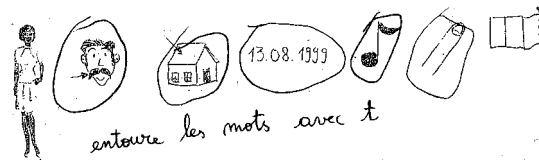 13.08.1999
entoure les mots avec t